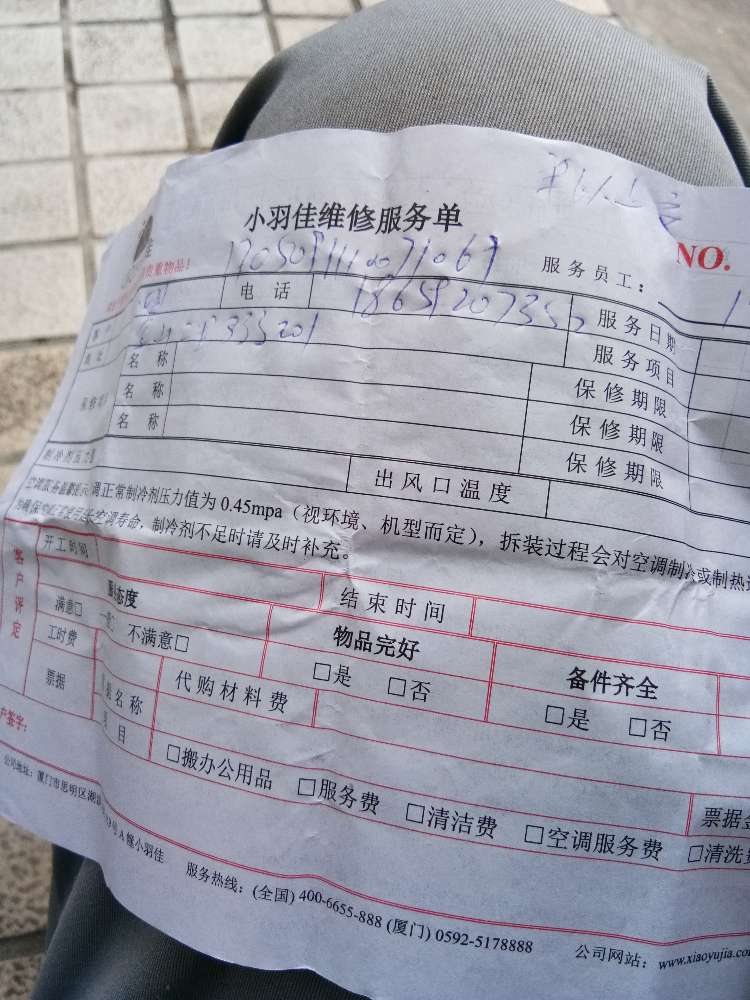 小羽佳维修服务单
NO.
贵重物品!
1705091110071069
服务员工:
电话
18659207352
服务日期
333201
服务项目
名称
保修期限
名称
保修期限
名称
保修期限
制冷剂压力值
出风口温度
调正常制冷剂压力值为0.45mpa(视环境、机型而定),拆装过程会对空调制冷或制热
空调寿命,制冷剂不足时请及时补充。
客户评定
开工时间
结束时间
服务态度
物品完好
备件齐全
满意□ 一般□ 不满意□
□是 □否
□是 □否
工时费
代购材料费
票据
票据名称
项目
□搬办公用品 □服务费 □清洁费 □空调服务费 □清洗费
票据金
户签字:
公司地址:厦门市思明区湖
号A幢小羽佳
服务热线:(全国) 400-6655-888 (厦门) 0592-5178888
公司网站: www.xiaoyujia.com